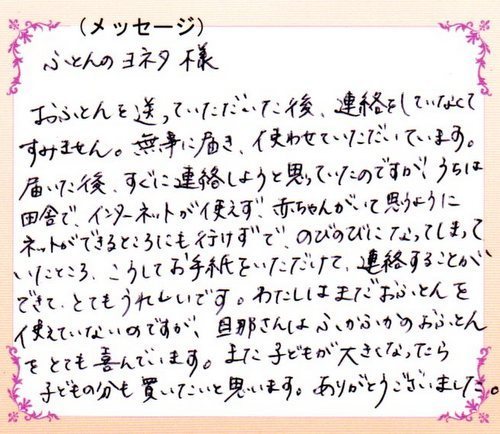 (メッセージ)
ふとんのヨネタ様
おふとんを送っていただいた後、連絡をしていなくて
すみません。無事に届き、使わせていただいています。
届いた後、すぐに連絡しようと思っていたのですが、うちは
田舎で、インターネットが使えず、赤ちゃんがいて思うように
ネットができるところにも行けずで、のびのびになってしまって
いたところ、こうしてお手紙をいただけて、連絡することが
できて、とてもうれしいです。わたしはまだおふとんを
使えていないのですが、旦那さんはふかふかのおふとん
をとても喜んでいます。また子どもが大きくなったら
子どもの分も買いたいと思います。ありがとうございました。